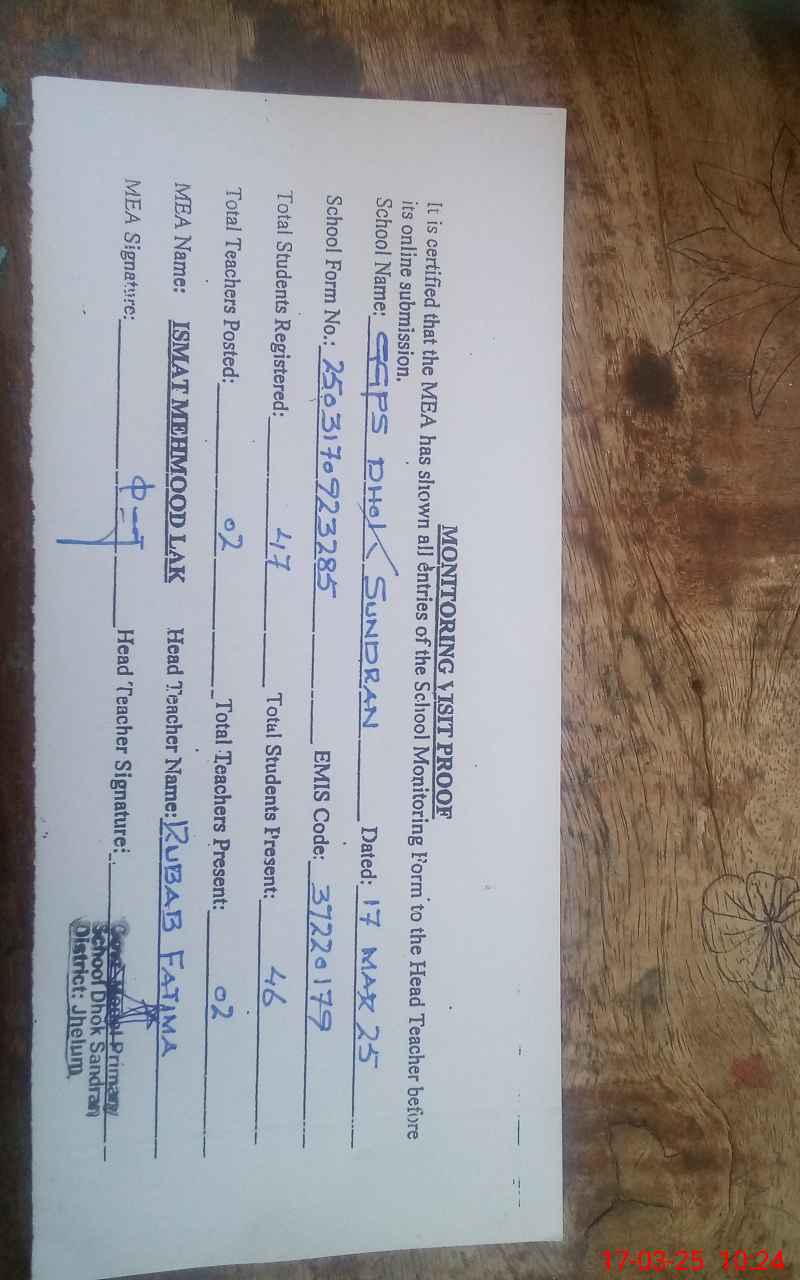 MONITORING VISIT PROOF
It is certified that the MEA has shown all entries of the School Monitoring Form to the Head Teacher before
its online submission.
School Name: GGPS DHOK SUNDRAN Dated: 17 MAR 25
School Form No.: 2503170923285 EMIS Code: 37220179
Total Students Registered: 47 Total Students Present: 46
Total Teachers Posted: 02 Total Teachers Present: 02
MEA Name: ISMAT MEHMOOD LAK Head Teacher Name: RUBAB FATIMA
MEA Signature: Head Teacher Signature:
Primary
School Dhok Sandran
District: Jhelum
17-03-25 10:24